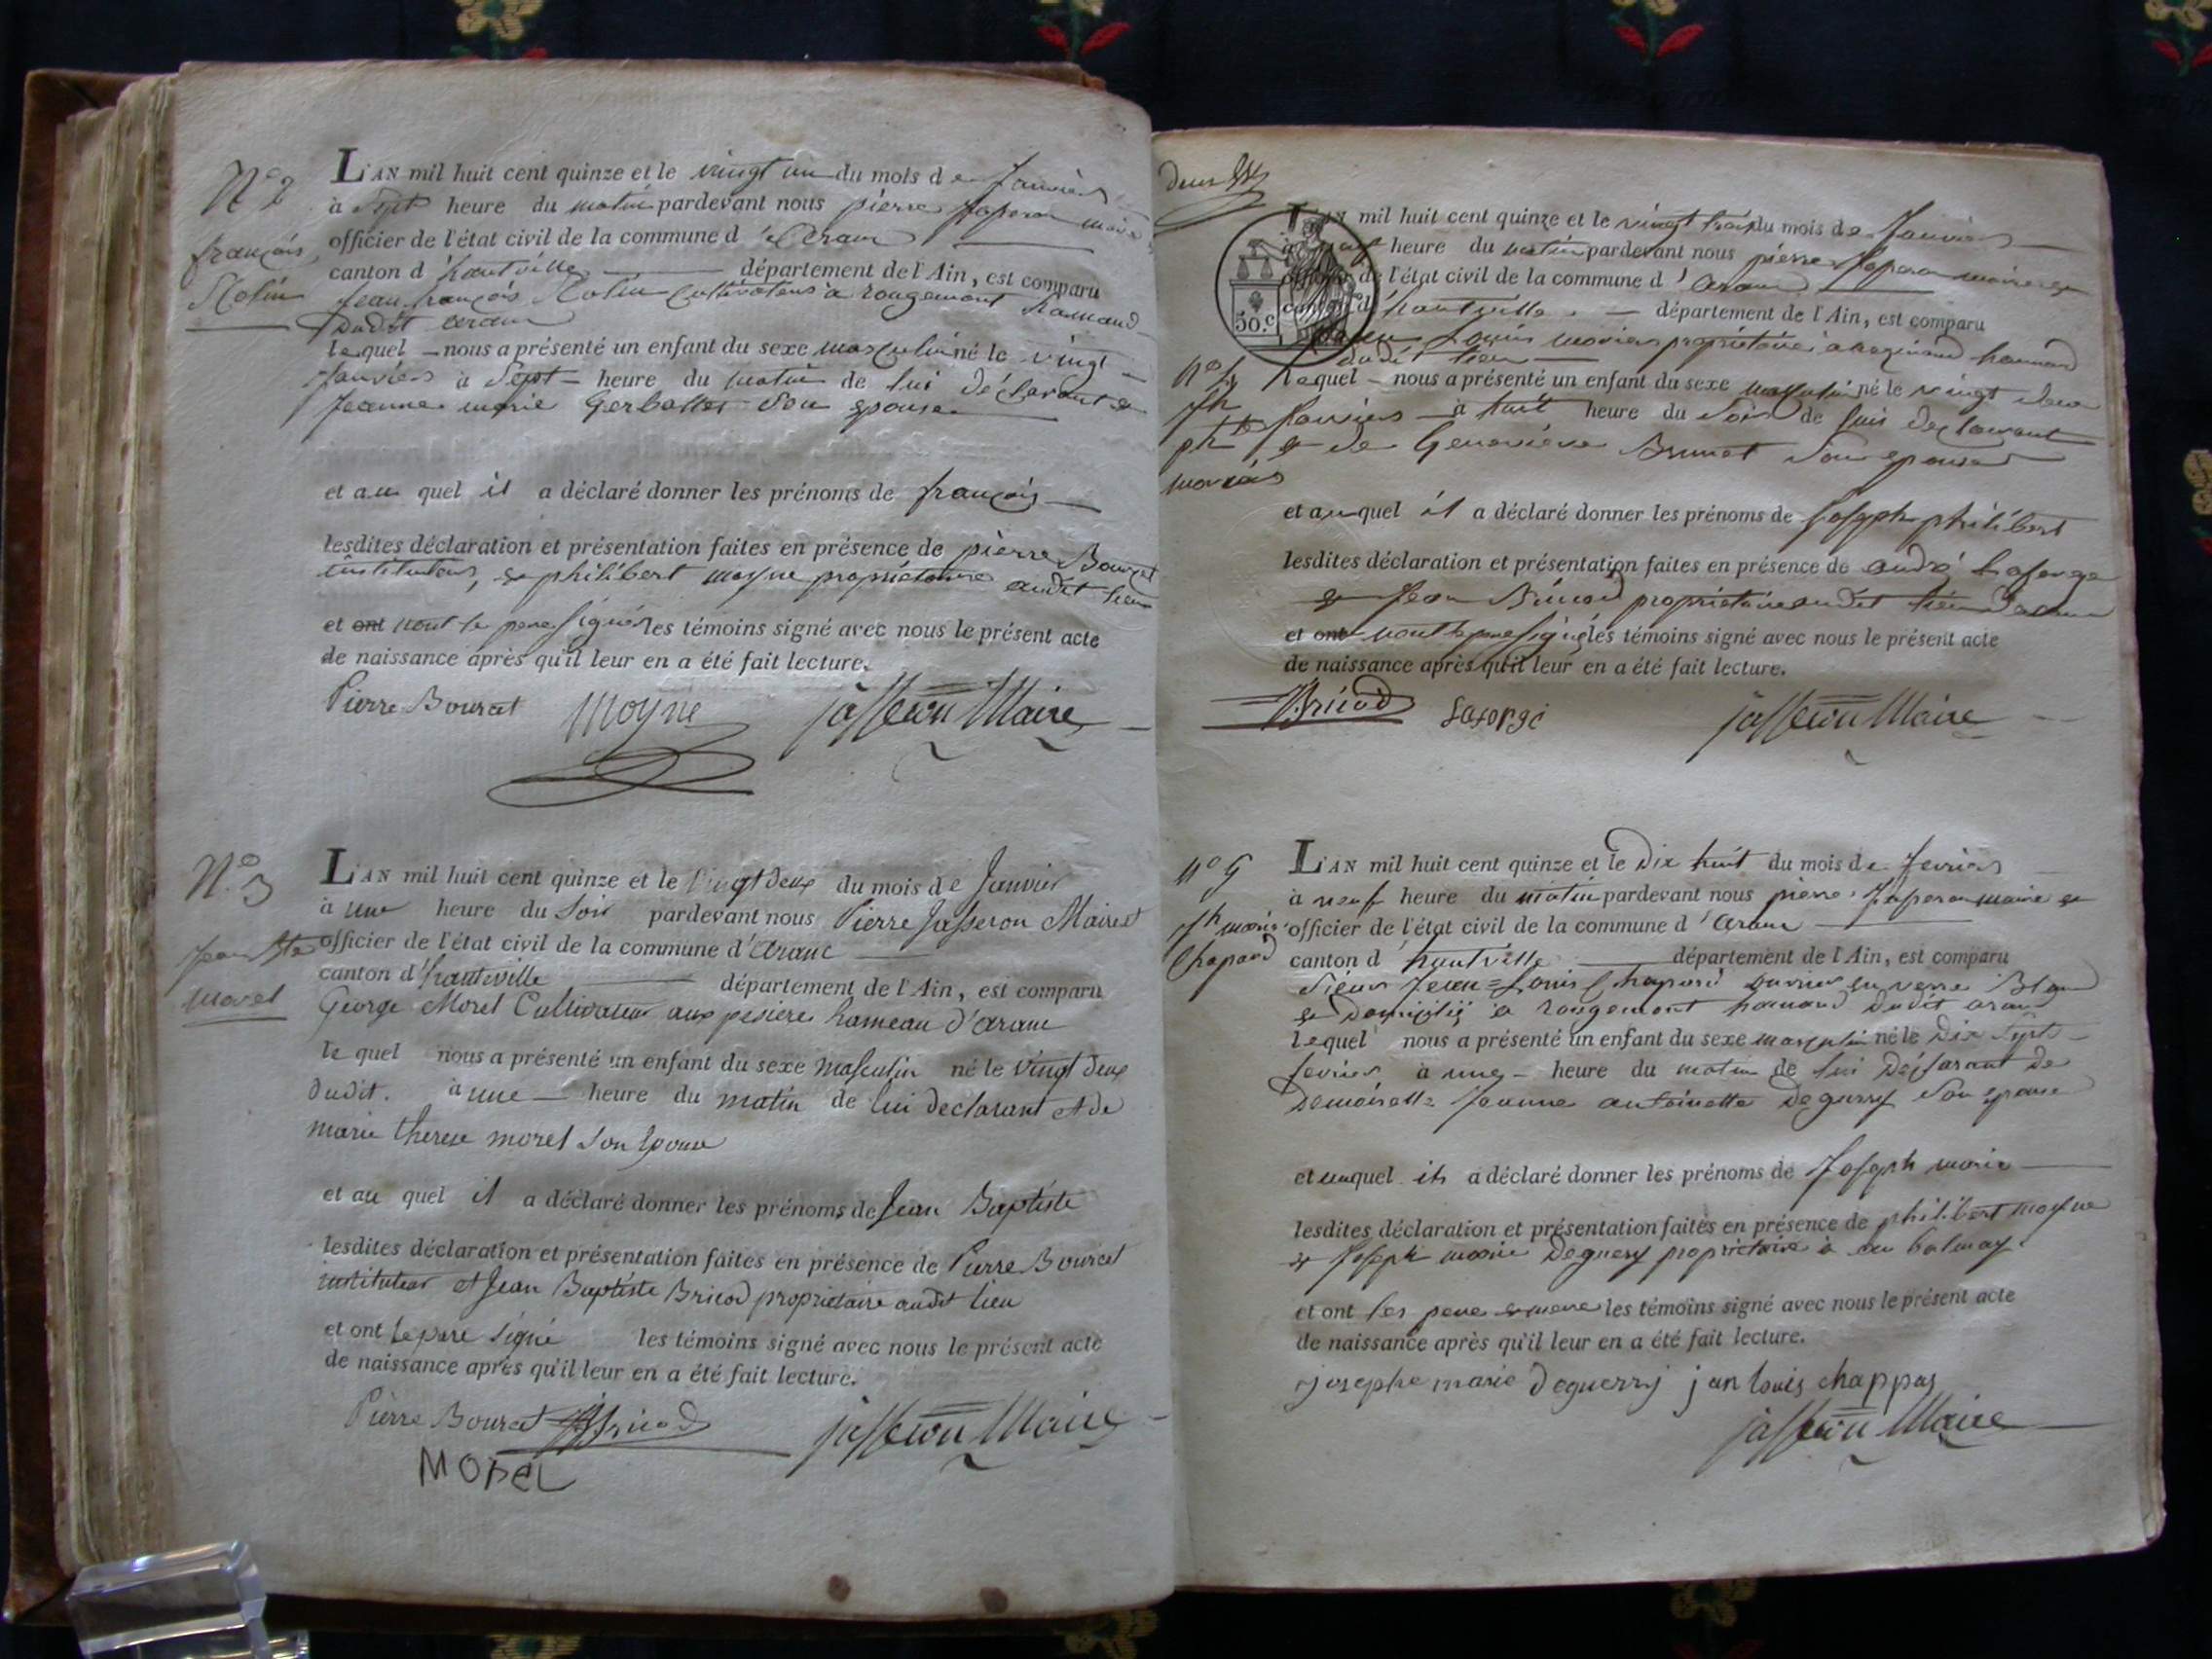 N.º 2
françois
L'AN mil huit cent quinze et le vingt un du mois de Janvier
à Sept heure du matin pardevant nous pierre Jasseron maire
officier de l'état civil de la commune d'Aranc
canton d'hautville département de l'Ain, est comparu
Jean françois cultivateur à rougemont hameaud
dudit aranc
lequel nous a présenté un enfant du sexe masculin né le vingt
Janvier à Sept heure du matin de lui déclarant &
Jeanne marie son epouse
et au quel il a déclaré donner les prénoms de françois
lesdites déclaration et présentation faites en présence de pierre Bourcet
instituteur, & philibert moyne propriétaire audit lieu
et ont nont le pere signé les témoins signé avec nous le présent acte
de naissance après qu'il leur en a été fait lecture.
Pierre Bourcet moyne jasseron Maire
N.º 3
Jean Bte
morel
L'AN mil huit cent quinze et le vingt deux du mois de Janvier
à une heure du soir pardevant nous Pierre Jasseron Maire et
officier de l'état civil de la commune d'aranc
canton d'hauteville département de l'Ain, est comparu
George Morel Cultivateur aux pesieres hameau d'aranc
le quel nous a présenté un enfant du sexe masculin né le vingt deux
dudit. à une heure du matin de lui declarant et de
marie therese morel son Epouse
et au quel il a déclaré donner les prénoms de Jean Baptiste
lesdites déclaration et présentation faites en présence de Pierre Bourcet
instituteur et Jean Baptiste Bricod propriétaire audit lieu
et ont le pere signé les témoins signé avec nous le présent acte
de naissance après qu'il leur en a été fait lecture.
Pierre Bourcet Bricod jasseron Maire
MOREL
deux
50.c
L'AN mil huit cent quinze et le vingt trois du mois de Janvier
à heure du matin pardevant nous pierre Jasseron maire &
officier de l'état civil de la commune d'aranc
canton d'hautville département de l'Ain, est comparu
Louis propriétaire à hameaud
dudit lieu
nº 4
Jh
phte
lequel nous a présenté un enfant du sexe masculin né le vingt deux
Janvier à huit heure du soir de lui declarant
& de Genevieve Brunet son epouse
et auquel il a déclaré donner les prénoms de Joseph philibert
lesdites déclaration et présentation faites en présence de andré Laforge
& Jean Bricod propriétaire audit lieu daranc
et ont nont le pere signé les témoins signé avec nous le présent acte
de naissance après qu'il leur en a été fait lecture.
Bricod Laforge jasseron Maire
nº 5
Jh marie
Chapard
L'AN mil huit cent quinze et le dix huit du mois de fevrier
à neuf heure du matin pardevant nous pierre Jasseron maire &
officier de l'état civil de la commune d'aranc
canton d'hautville département de l'Ain, est comparu
Sieur Jean=Louis Chapard ouvrier en verre Blanc
& domicilié à rougemont hameaud dudit aranc
lequel nous a présenté un enfant du sexe masculin né le dix sept
fevrier à une heure du matin de lui déclarant de
demoiselle Jeanne antoinette deguerry son epouse
et auquel ils a déclaré donner les prénoms de Joseph marie
lesdites déclaration et présentation faites en présence de philibert moyne
& Joseph marie deguery propriétaire à au balmay
et ont les pere & mere les témoins signé avec nous le présent acte
de naissance après qu'il leur en a été fait lecture.
josephe marie deguerrij jan louis chappas
jasseron Maire